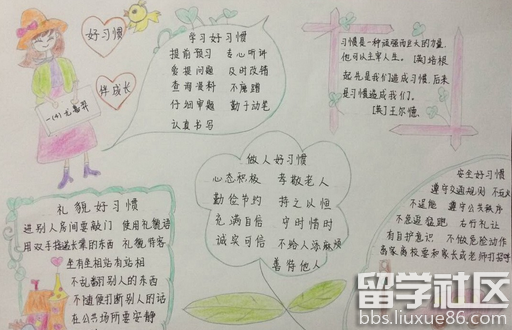 好习惯
伴成长
学习好习惯
提前预习 专心听讲
爱提问题 及时改错
查询资料 不磨蹭
仔细审题 勤于动笔
认真书写
习惯是一种顽强而巨大的力量,
他可以主宰人生。[英]培根
起先是我们造成习惯,后来
是习惯造成我们。
[英]王尔德
做人好习惯
心态积极 孝敬老人
勤俭节约 持之以恒
充满自信 守时惜时
诚实可信 不给人添麻烦
善待他人
礼貌好习惯
进别人房间要敲门 使用礼貌语
用双手接递长辈的东西 礼貌待客
坐有坐相站有站相
不乱翻别人的东西
不随便打断别人的话
在公共场所要安静
安全好习惯
遵守交通规则 不玩火
不逞能 遵守公共秩序
不急追猛跑 右行礼让
有自护意识 不做危险动作
离家离校要和家长或老师打招呼
留学社区
bbs.liuxue86.com